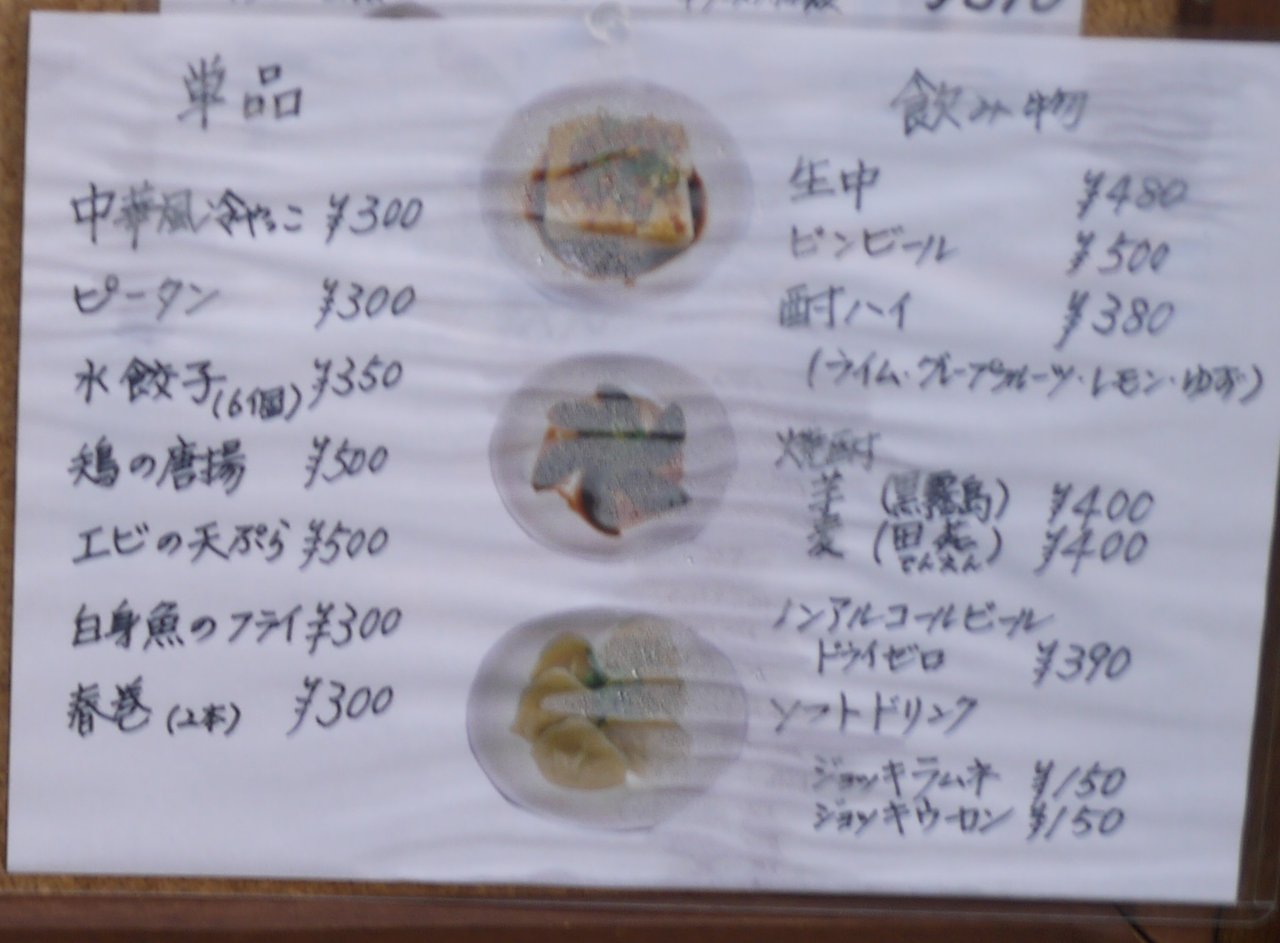 単品
中華風冷やっこ ¥300
ピータン ¥300
水餃子(6個) ¥350
鶏の唐揚 ¥500
エビの天ぷら ¥500
白身魚のフライ ¥300
春巻(2本) ¥300
飲み物
生中 ¥480
ビンビール ¥500
酎ハイ ¥380
(ライム・グレープフルーツ・レモン・ゆず)
焼酎
芋 (黒霧島) ¥400
麦 (田苑) ¥400
でんえん
ノンアルコールビール
ドライゼロ ¥390
ソフトドリンク
ジョッキラムネ ¥150
ジョッキウーロン ¥150